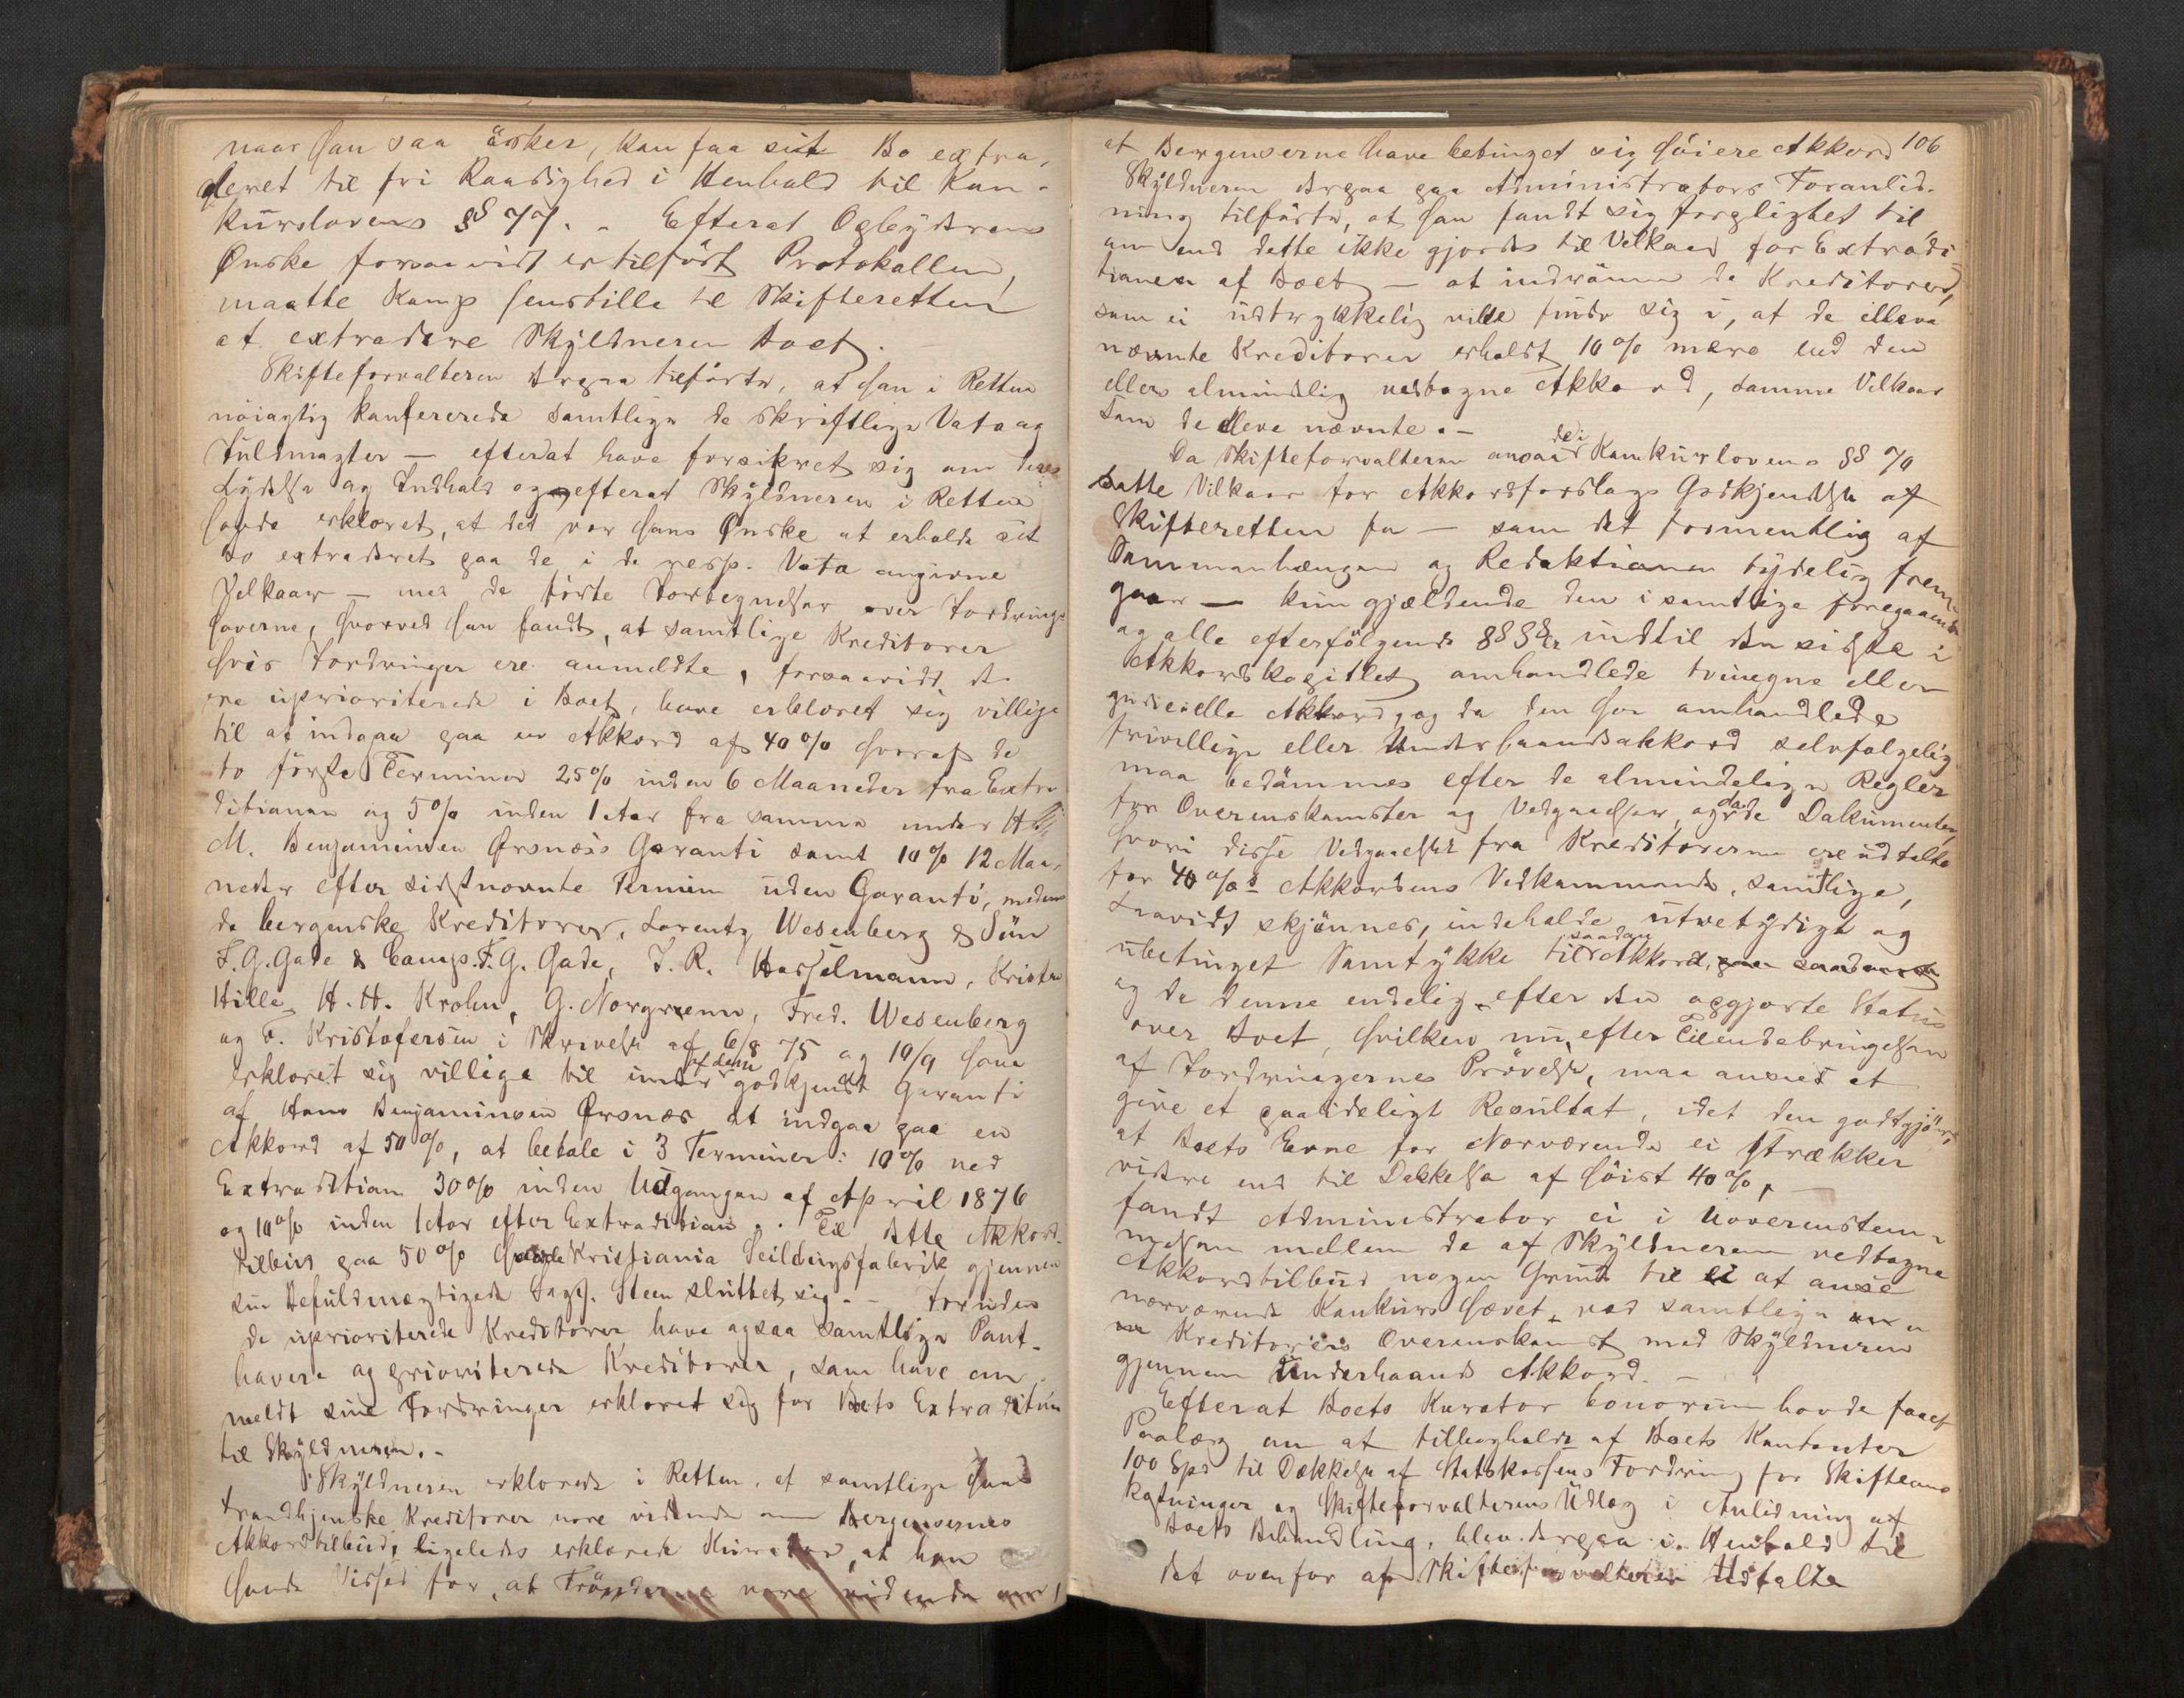 naar han saa äsker, kan faa sit Bo extra,
deret til fri Raadighed i Henhold til Kon-
kurslovens §§ 77. - Efterat Opbyderens
Ønske forsaavidt er tilført Protokollen,
maatte Komp henstille til Skifteretten
at extradere Skyldneren Boet. -
Skifteforvalteren derpaa tilførte, at han i Retten
nöiagtig konfererede samtlige de skriftlige Vota og
Fuldmagter - efterat have forsikret sig om deres
Lydelse og Indhold og efterat Skyldneren i Retten
havde erklæret, at det var hans Ønske at erholde sit
Bo extraderet paa de i de resp. Vota angivne
Velkaar - med de førte Fortegnelser over Fordrings-
haverne, hvorved han fandt, at samtlige Kreditorer
hvis Fordringer ere anmeldte, forsaavidt de
ere uprioriterede i Boet, have erklæret sig villige
til at indgaa paa en Akkord af 40% hvoraf de
to første Terminer 25% inden 6 Maaneder fra Extra
ditionen og 5% inden 1 Aar fra samme under H
M. Benjaminsen Ørsnæs Garanti samt 10% 12 Maa,
neder efter sidstnævnte Termin uden Garanti, medens
de bergenske Kreditorer, Lorentz Wesenberg & Sön
F. G. Gade & Comp. F. G. Gade, J. R. Hasselmann, Kristen
Hille, H. H. Krohn, G. Norgreenn, Fred. Wesenberg
og F. Kristofersen i Skrivelse af 6/8 75 og 10/9 have
erklæret sig villige til under af dem godkjendt Garanti
af Hans Benjaminsen Ørsnæs at indgaa paa en
Akkord af 50%, at betale i 3 Terminer: 10% ved
Extradition 30% inden Udgangen af April 1876
og 10% inden 1 Aar efter Extradition. Til dette Akkord-
tilbud paa 50% havde Kristiania Seildugsfabrik gjennem
sin Befuldmægtigede Sagf. Steen sluttet sig. - Foruden
de uprioriterede Kreditorer have ogsaa samtlige Pant-
havere og prioriterede Kreditorer, som have an
meldt sine Fordringer erklæret sig for Boets Extradition
til Skyldneren. -
Skyldneren erklærede i Retten, at samtlige hans
trondhjemske Kreditorer vare vidende om Bergensernes
Akkordtilbud; ligeledes erklærede Kurator, at han
havde Vished for, at Trönderne vare vidende om,
at Bergenserne have betinget sig høiere Akkord 106
Skyldneren derpaa paa Administrators Foranled-
ning tilførte, at han fandt sig forpligtet til
om end dette ikke gjordes til Velkaar for Extradi
tionen af Boet - at indrømme de Kreditorer,
som ei udtrykkelig ville finde sig i, at de elleve
nævnte Kreditorer erholdt 10% mere end den
ellers almindelig vedtagne Akkord, samme Vilkaar
som de elleve nævnte. -
Da Skifteforvalteren ansaa de i Konkurslovens §§ 70
satte Vilkaar for Akkordforslags Godkjendelse af
Skifteretten for - som det formentlig af
Sammenhængen og Redaktionen tydelig frem-
gaar - kun gjældende den i samtlige foregaaende
og alle efterfølgende §§§§er indtil den sidste i
Akkordkapitlet omhandlede tvungne eller
judicielle Akkord, og da den her omhandlede
frivillige eller Underhaandsakkord selvfølgelig
maa bedømmes efter de almindelige Regler
for Overenskomster og Vedgaaelser, og da de Dokumenter,
hvori disse Vedgaaelser fra Kreditorerne ere udtalte
for 40%s Akkordens Vedkommende, samtlige,
saavidt skjønnes, indeholde utvetydigt og
ubetinget Samtykke til saadan Akkord,
og da denne endelig efter den opgjorte Status
over Boet, hvilken nu, efter Tilendebringelsen
af Fordringernes Prøvelse, maa ansees at
give et paalideligt Resultat, idet den godtgjør,
at Boets Evne for Nærværende ei strækker
videre end til Dækkelse af høist 40%, -
fandt Administrator ei i Uoverenstem-
melsen mellem de af Skyldneren vedtagne
Akkordtilbud nogen Grund til ei at anse
nærværende Konkurs hævet ved samtlige
Kreditorers Overenskomst med Skyldneren
gjennem Underhaands Akkord. -
Efterat Boets Kurator bonorum havde faaet
Paalæg om at tilbageholde af Boets Kontanter
100 Spd til Dækkelse af Statskassens Fordring for Skifteom-
kostninger og Skifteforvalterens Udlæg i Anledning af
Boets Behandling, blev derpaa i Henhold til
det ovenfor af Skifteforvalteren Udtalte